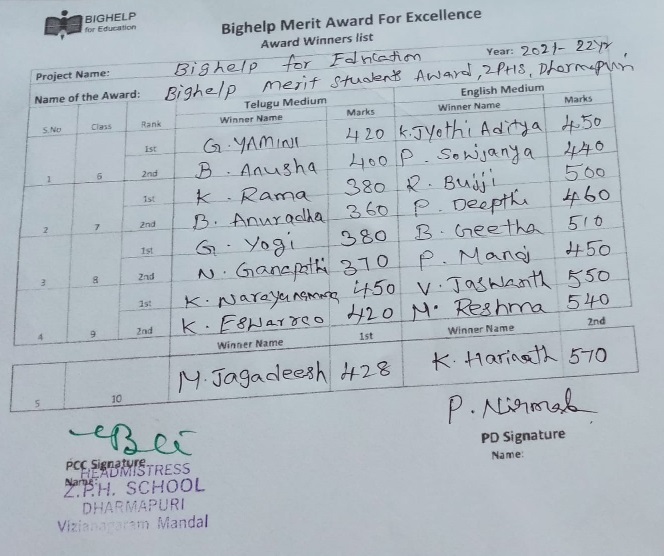 BIGHELP
for Education
Bighelp Merit Award For Excellence
Award Winners list
Project Name: Bighelp for Education Year: 2021-22 yr
Name of the Award: Bighelp merit Students Award, ZPHS, Dharmapuri
Telugu Medium English Medium
S.No Class Rank Winner Name Marks Winner Name Marks
1st G. YAMINI 420 K. Jyothi Aditya 450
1 6 2nd B. Anusha 400 P. Sowjanya 440
1st K. Rama 380 R. Bujji 500
2 7 2nd B. Anuradha 360 P. Deepthi 460
1st G. Yogi 380 B. Geetha 510
3 8 2nd N. Ganapathi 370 P. Manoj 450
1st K. 450 V. Jaswanth 550
4 9 2nd K. Eswarroo 420 M. Reshma 540
Winner Name 1st Winner Name 2nd
5 10 M. Jagadeesh 428 K. Harinath 570
P. Nirmala
PCC Signature PD Signature
Name: Name:
HEADMISTRESS
Z.P.H. SCHOOL
DHARMAPURI
Vizianagaram Mandal